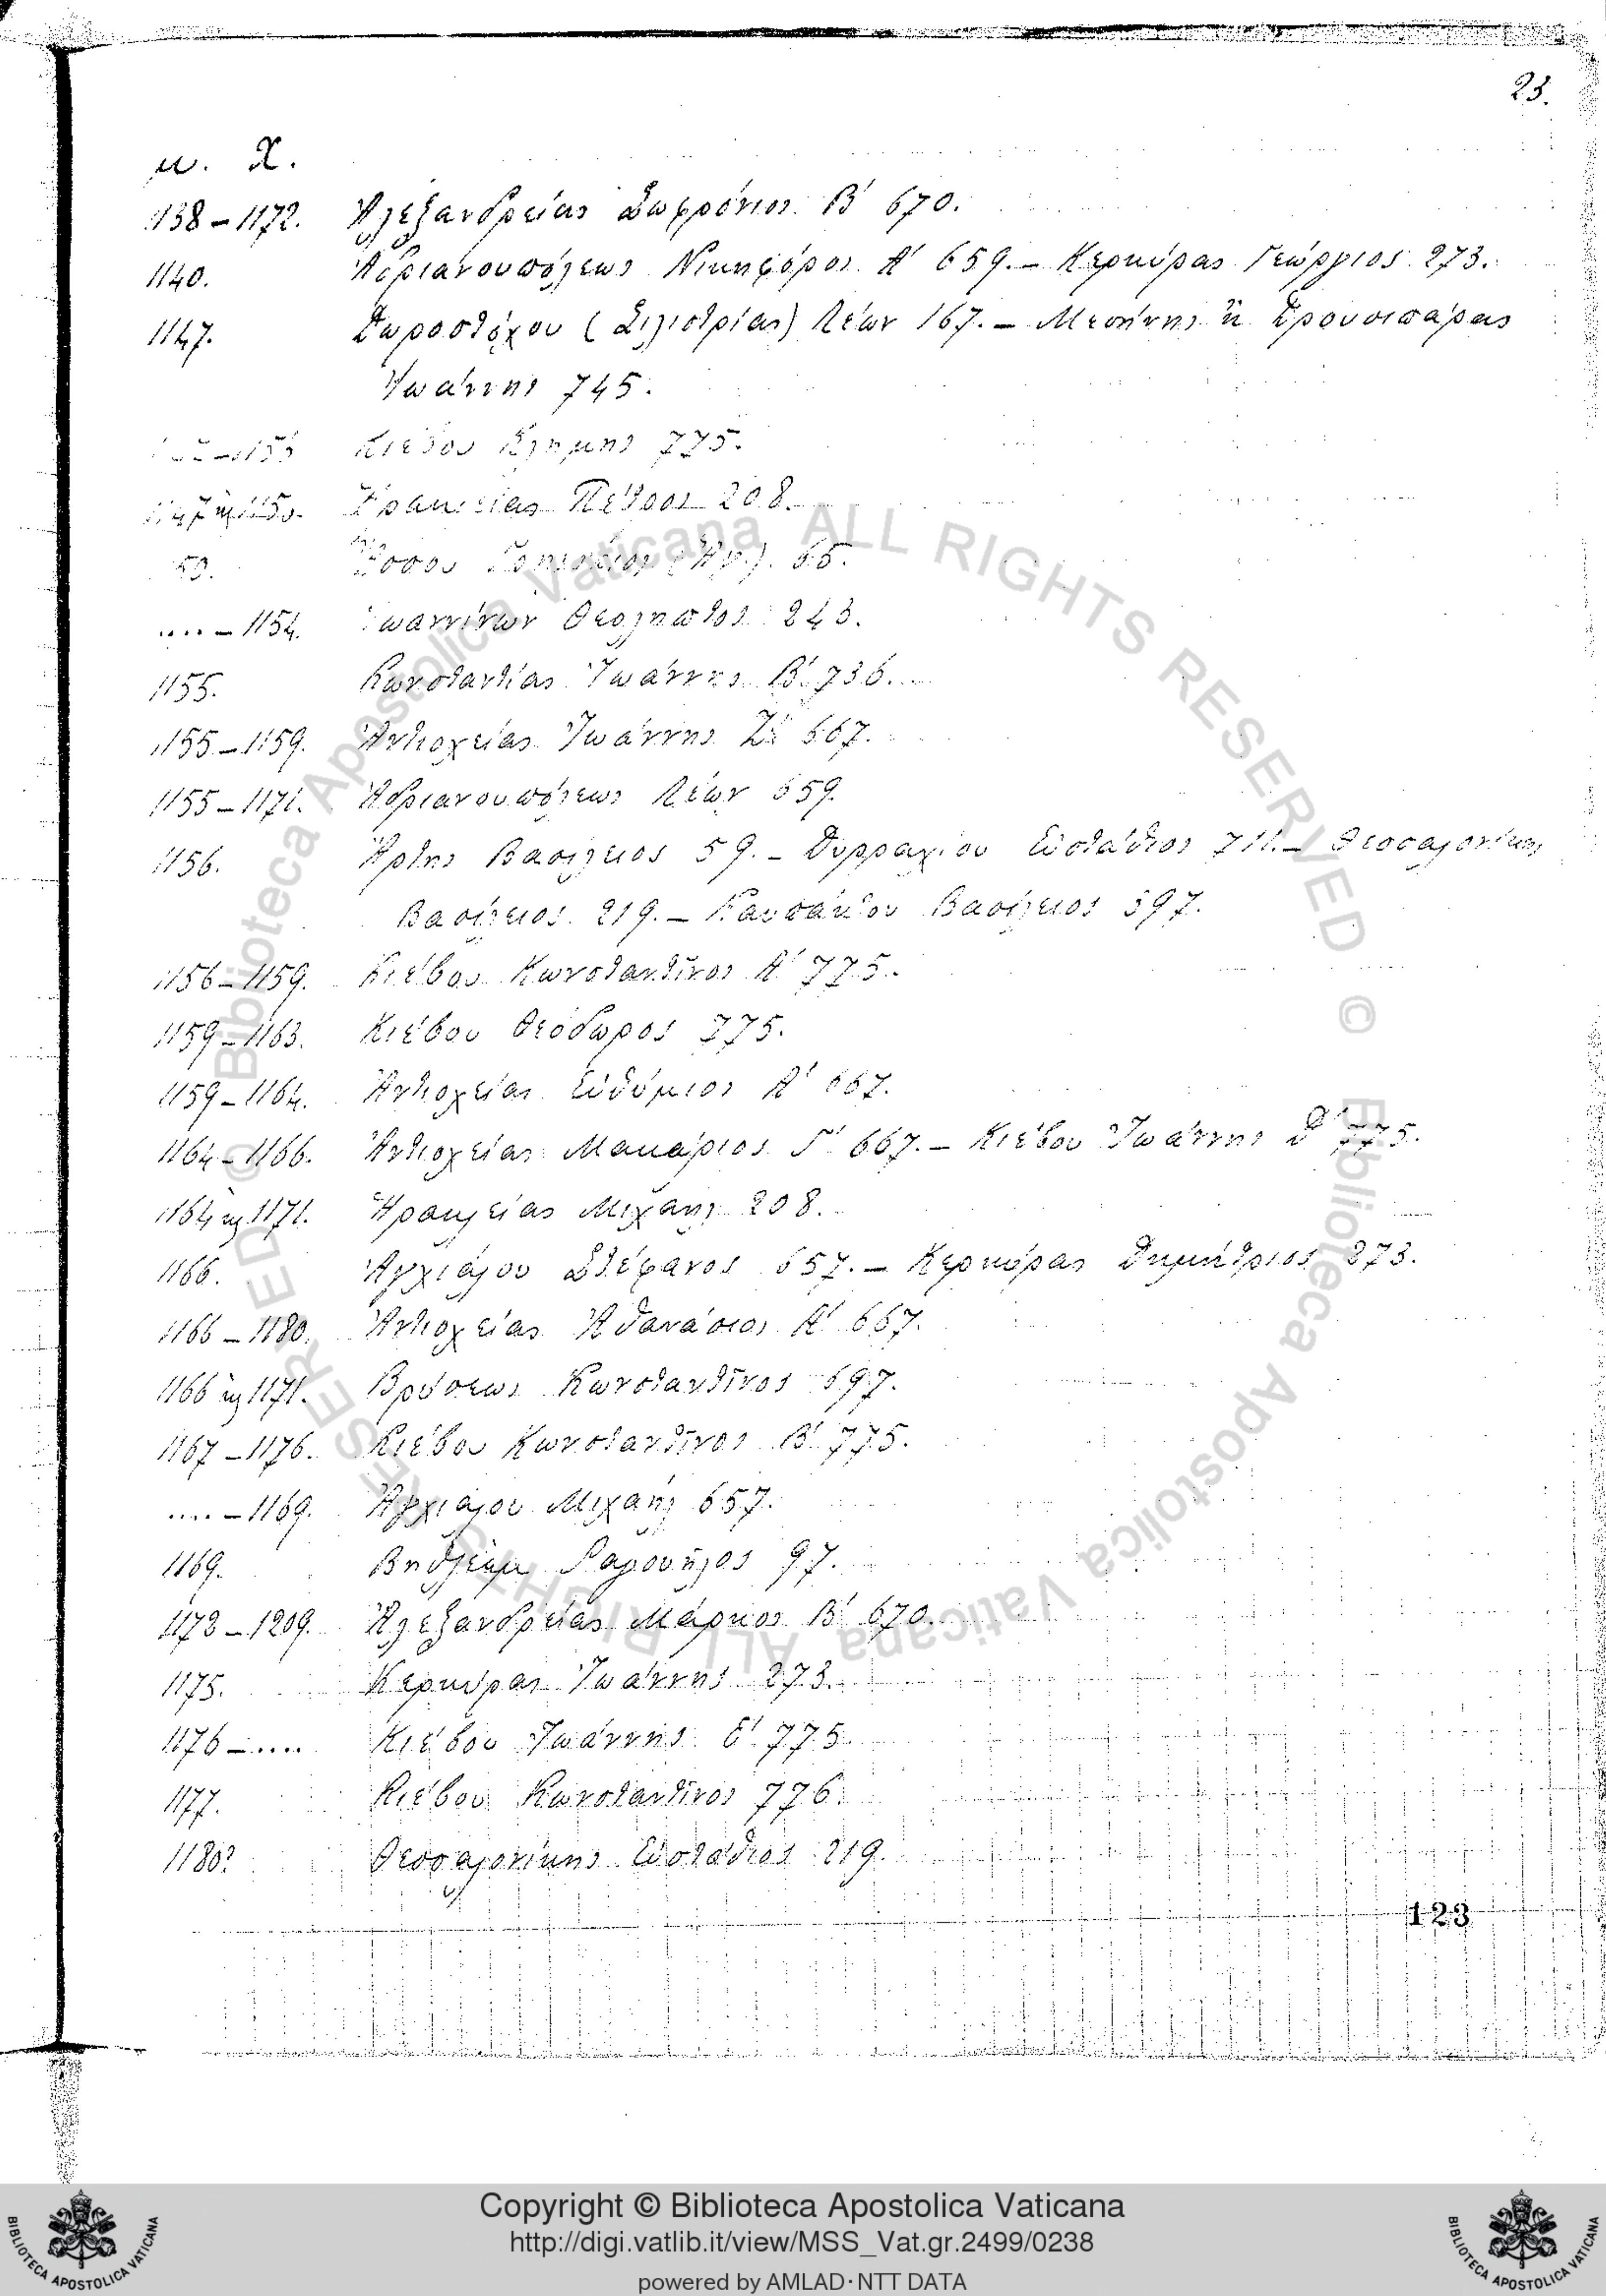 23.
μ. Χ.
1138 – 1172. Ἀλεξανδρείας Σωφρόνιος Β' 670.
1140. Ἀδριανουπόλεως Νικηφόρος Α' 659. – Κερκύρας Γεώργιος 273.
1147. Δωροστόλου (Σιλιστρίας) Λέων 167. – Μεσήνης ἢ Δρουσιπάρας
Ἰωάννης 745.
–1155 Κιέβου Κλήμης 775.
1147 καὶ 1150. Ἡρακλείας Πέτρος 208.
65.
.... – 1154. Ἰωαννίνων Θεόληπτος 243.
1155. Κωνσταντίας Ἰωάννης Β' 736.
1155 – 1159. Ἀντιοχείας Ἰωάννης 667.
1155 – 1171. Ἀδριανουπόλεως Λέων 659.
1156. Ἄρτης Βασίλειος 59. – Δυρραχίου Εὐστάθιος 711. – Θεσσαλονίκης
Βασίλειος 219. – Ναυπάκτου Βασίλειος 597.
1156 – 1159. Κιέβου Κωνσταντῖνος Α' 775.
1159 – 1163. Κιέβου Θεόδωρος 775.
1159 – 1164. Ἀντιοχείας Εὐθύμιος Α' 667.
1164 – 1166. Ἀντιοχείας Μακάριος Γ' 667. – Κιέβου Ἰωάννης Δ' 775.
1164 καὶ 1171. Ἡρακλείας Μιχαὴλ 208.
1166. Ἀγχιάλου Στέφανος 657. – Κερκύρας Δημήτριος 273.
1166 – 1180. Ἀντιοχείας Ἀθανάσιος Α' 667.
1166 καὶ 1171. Βρύσεως Κωνσταντῖνος 697.
1167 – 1176. Κιέβου Κωνσταντῖνος Β' 775.
.... – 1169. Ἀγχιάλου Μιχαὴλ 657.
1169. Βηθλεὲμ Ῥαφουῆλος 97.
1172 – 1209. Ἀλεξανδρείας Μάρκος Β' 670.
1175. Κερκύρας Ἰωάννης 273.
1176 – .... Κιέβου Ἰωάννης Ε' 775.
1177. Κιέβου Κωνσταντῖνος 776.
1180? Θεσσαλονίκης Εὐστάθιος 219.
123
Copyright © Biblioteca Apostolica Vaticana
http://digi.vatlib.it/view/MSS_Vat.gr.2499/0238
powered by AMLAD·NTT DATA